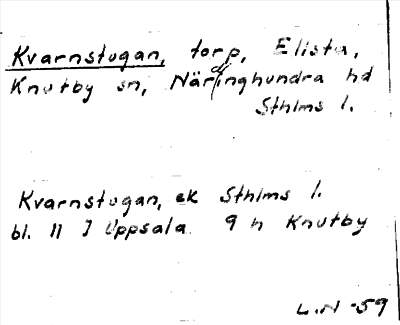 Kvarnstugan, torp, Elista,
Knutby sn, Närdinghundra hd
Sthlms l.
Kvarnstugan, ek Sthlms l.
bl. 11 J Uppsala 9 h Knutby
L.N -59